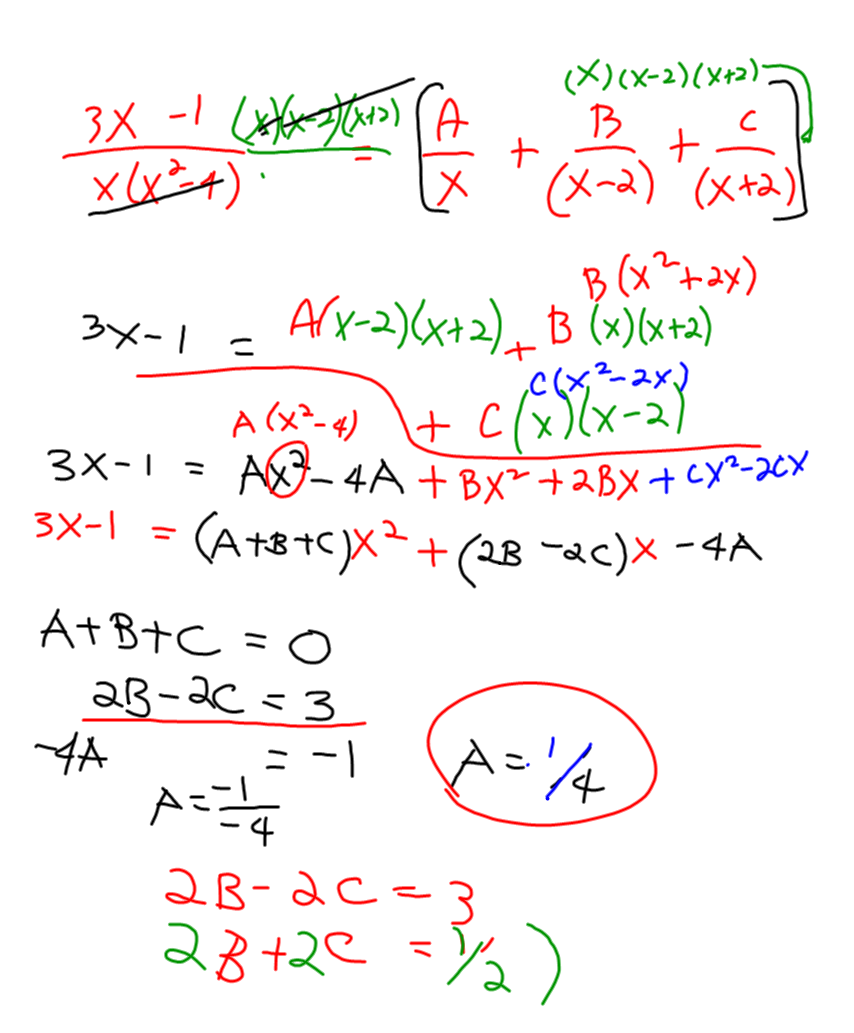 (x)(x-2)(x+2)
3x -1 (x)(x-2)(x+2) = [A + B + C]
x(x²-4) x (x-2) (x+2)
B(x²+2x)
3x-1 = A(x-2)(x+2) + B (x)(x+2)
C(x²-2x)
A(x²-4) + C(x)(x-2)
3x-1 = Ax²-4A + Bx² + 2Bx + Cx²-2Cx
3x-1 = (A+B+C)x² + (2B -2C)x -4A
A+B+C = 0
2B-2C = 3
-4A = -1 A = 1/4
A = -1/-4
2B-2C = 3
2B+2C = 1/2 )